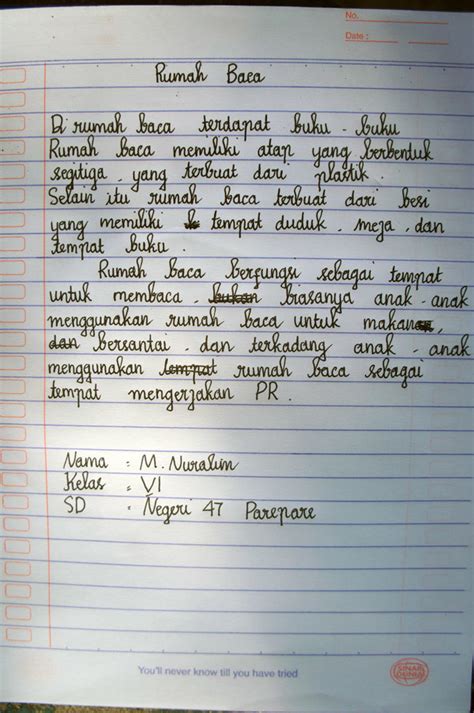 No.
Date :
Rumah Baca
Di rumah baca terdapat buku - buku
Rumah baca memiliki atap yang berbentuk
segitiga, yang terbuat dari plastik.
Selain itu rumah baca terbuat dari besi
yang memiliki tempat duduk, meja, dan
tempat buku.
Rumah baca berfungsi sebagai tempat
untuk membaca, bukan biasanya anak-anak
menggunakan rumah baca untuk makan,
dan bersantai, dan terkadang anak-anak
menggunakan tempat rumah baca sebagai
tempat mengerjakan PR.
Nama : M. Nuralim
Kelas : VI
SD : Negeri 47 Parepare
You'll never know till you have tried
SINAR
DUNIA